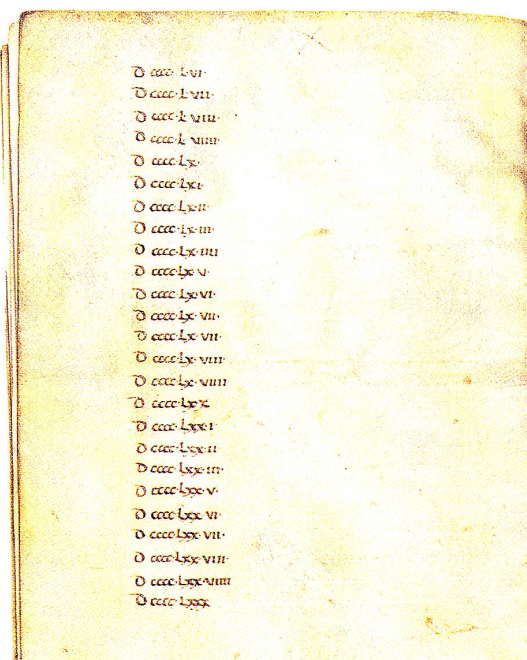 D cccc L VI·
D cccc L VII·
D cccc L VIII·
D cccc L VIIII·
D cccc Lx·
D cccc Lx I·
D cccc Lx II·
D cccc Lx III·
D cccc Lx IIII
D cccc Lx V·
D cccc Lx VI·
D cccc Lx VII·
D cccc Lx VII·
D cccc Lx VIII·
D cccc Lx VIIII
D cccc Lxx
D cccc Lxx I
D cccc Lxx II
D cccc Lxx III·
D cccc Lxx V·
D cccc Lxx VI·
D cccc Lxx VII·
D cccc Lxx VIII·
D cccc Lxx VIIII
D cccc Lxxx